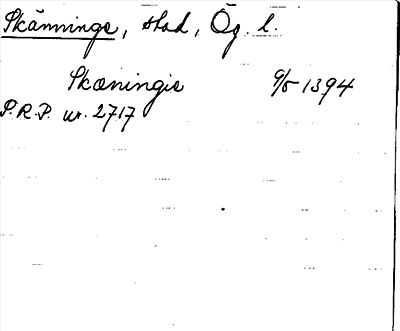 Skänninge, stad, Ög. l.
Skæningis 9/5 1394
P.R.P. nr. 2717